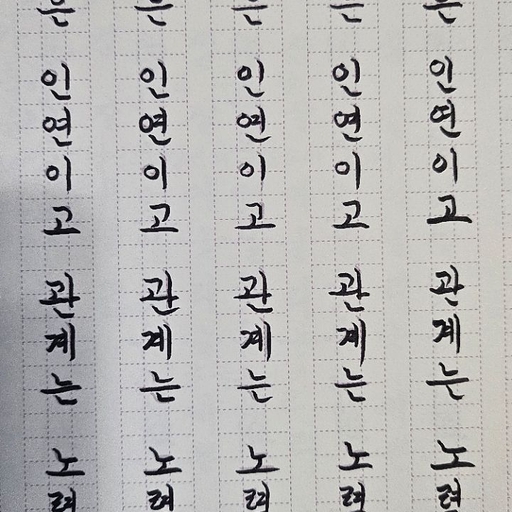 은 인연이고 관계는 노력
은 인연이고 관계는 노력
은 인연이고 관계는 노력
은 인연이고 관계는 노력
은 인연이고 관계는 노력